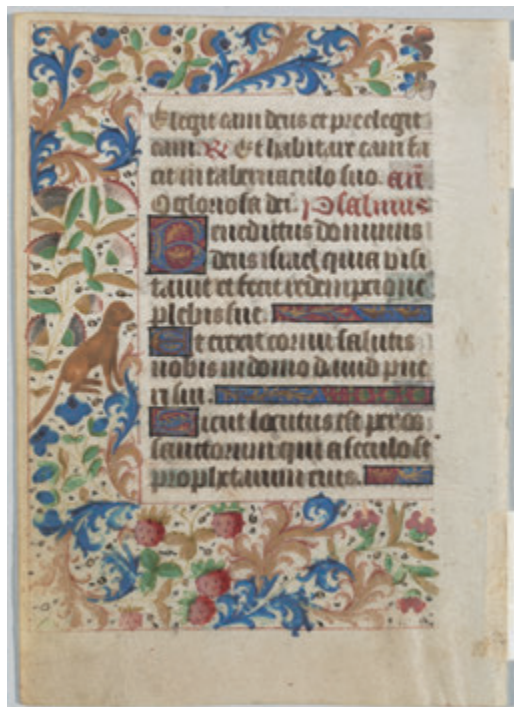 Elegit eam deus et preelegit
eam. R Et habitare eam fa
cit in tabernaculo suo. an
O gloriosa dei. Psalmus
Benedictus dominus
deus israel quia visi
tauit et fecit redemptione
plebis sue.
Et erexit cornu salutis
nobis in domo dauid pue
ri sui.
Sicut locutus est per os
sanctorum qui a seculo st
prophetarum eius.